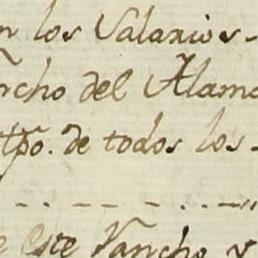 n los Salarios-
ncho del Alamo
tpõ. de todos los-
e este Rancho, y